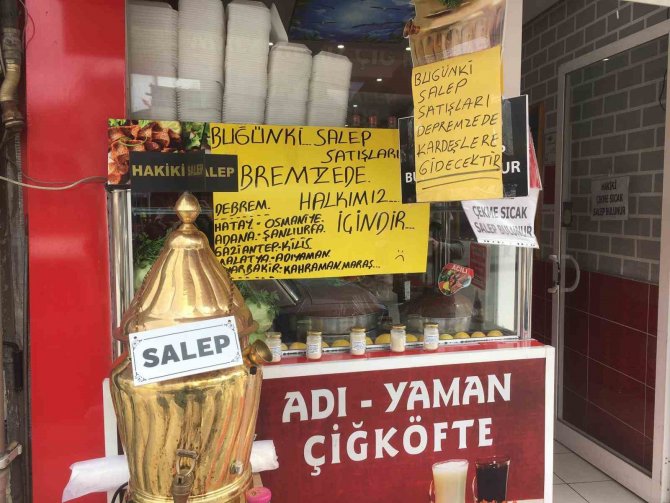 ÇİĞ K
BUGÜNKİ
SALEP
SATIŞLARI
DEPREMZEDE
KARDEŞLERE
GİDECEKTİR
BUGÜNKİ SALEP
SATIŞLARI
BREMZEDE
HALKIMIZ...
İÇİNDİR...
DEBREM.
HATAY - OSMANİYE.
ADANA - ŞANLIURFA.
GAZİANTEP - KİLİS
MALATYA - ADIYAMAN.
DİYARBAKIR - KAHRAMAN MARAŞ...
HAKİKİ SALEP
ALEP
BU
NUR
ÇEKME SICAK
SALEP BULUNUR
HAKİKİ
ÇEKME SICAK
SALEP BULUNUR
ACILI
SALEP
ADI - YAMAN
ÇİĞKÖFTE